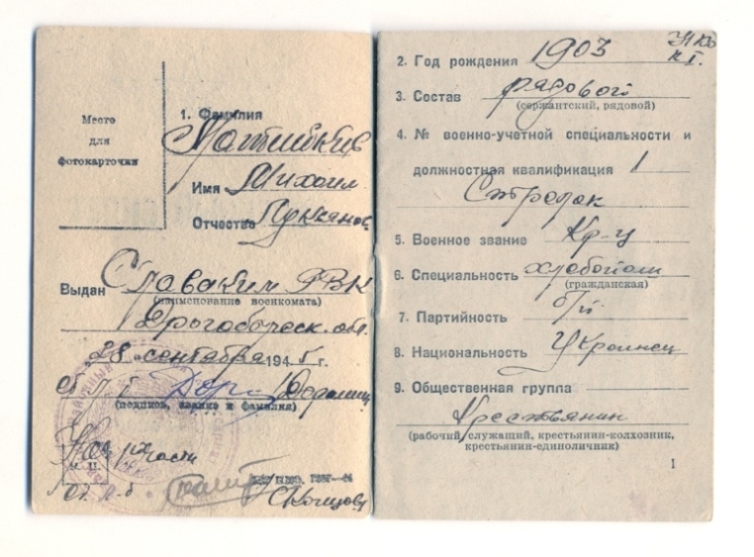 Место
для
фотокарточки
1. Фамилия
Матвийкив
Имя Михаил
Отчество Лукьянов
Выдан Славским РВК
(наименование военкомата)
Дрогобическ. обл.
„28 сентября 1945 г.
(подпись, звание и фамилия)
Нач. части
М. П.
2. Год рождения 1903
3. Состав рядовой
(сержантский, рядовой)
4. № военно-учетной специальности и
должностная квалификация 1
Стрелок
5. Военное звание Кр-ц
6. Специальность хлебопаш
(гражданская)
7. Партийность б/п
8. Национальность Украинец
9. Общественная группа
Крестьянин
(рабочий, служащий, крестьянин-колхозник,
крестьянин-единоличник)
1